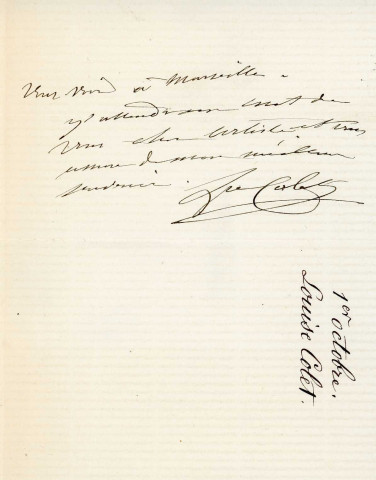 vous voir à Marseille.
j'y attendrai un mot de
vous cher Artiste et vous
assure de mon meilleur
souvenir.
Lse Colet
1er octobre.
Louise Colet.